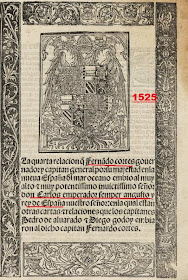 1525
La quarta relacion q̃ Fernãdo cortes gouer
nador y capitan general por su majestad en la
nueua España dl mar oceano embio al muy
alto τ muy potentissimo inuictissimo señor
don Carlos emperador semper augusto y
rey de España nuestro señor: en la qual estan
otras cartas τ relaciones que los capitanes
Pedro de aluarado τ Diego godoy embia
ron al dicho capitan Fernãdo cortes.